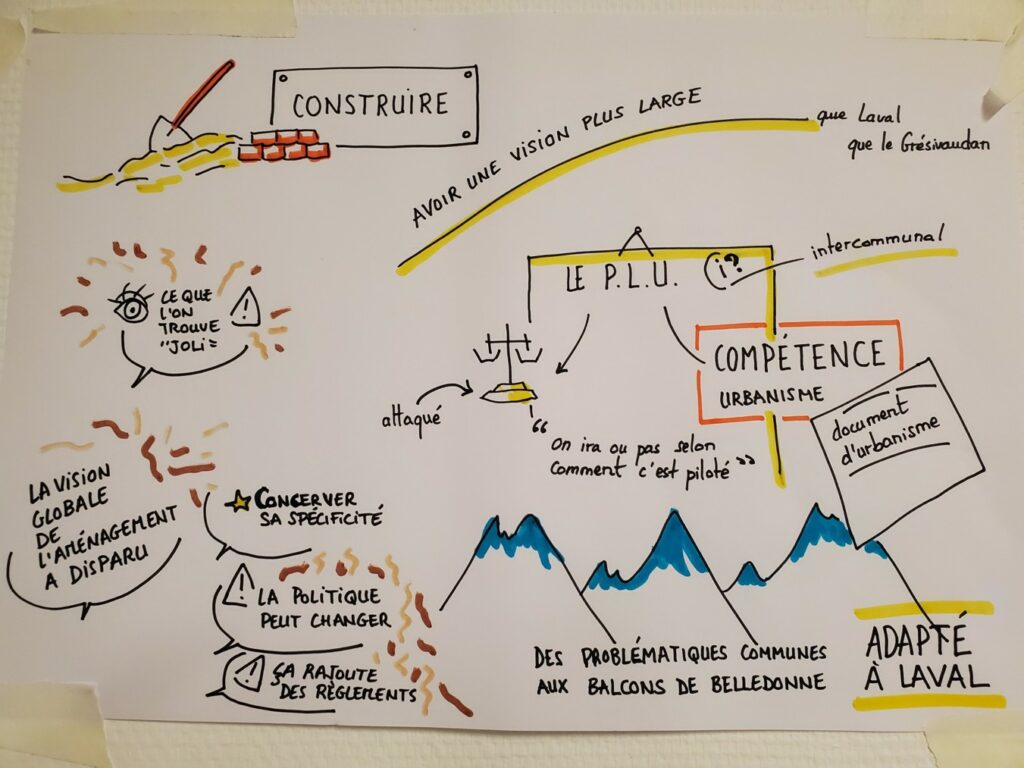 CONSTRUIRE
AVOIR UNE VISION PLUS LARGE
que Laval
que le Grésivaudan
CE QUE
L'ON
TROUVE
"JOLI"
!
LE P.L.U. (i?
intercommunal
COMPÉTENCE
URBANISME
document
d'urbanisme
attaqué
"On ira ou pas selon
comment c'est piloté"
LA VISION
GLOBALE
DE
L'AMÉNAGEMENT
A DISPARU
CONCERVER
SA SPÉCIFICITÉ
!
LA POLITIQUE
PEUT CHANGER
!
ÇA RAJOUTE
DES RÈGLEMENTS
DES PROBLÉMATIQUES COMMUNES
AUX BALCONS DE BELLEDONNE
ADAPTÉ
À LAVAL